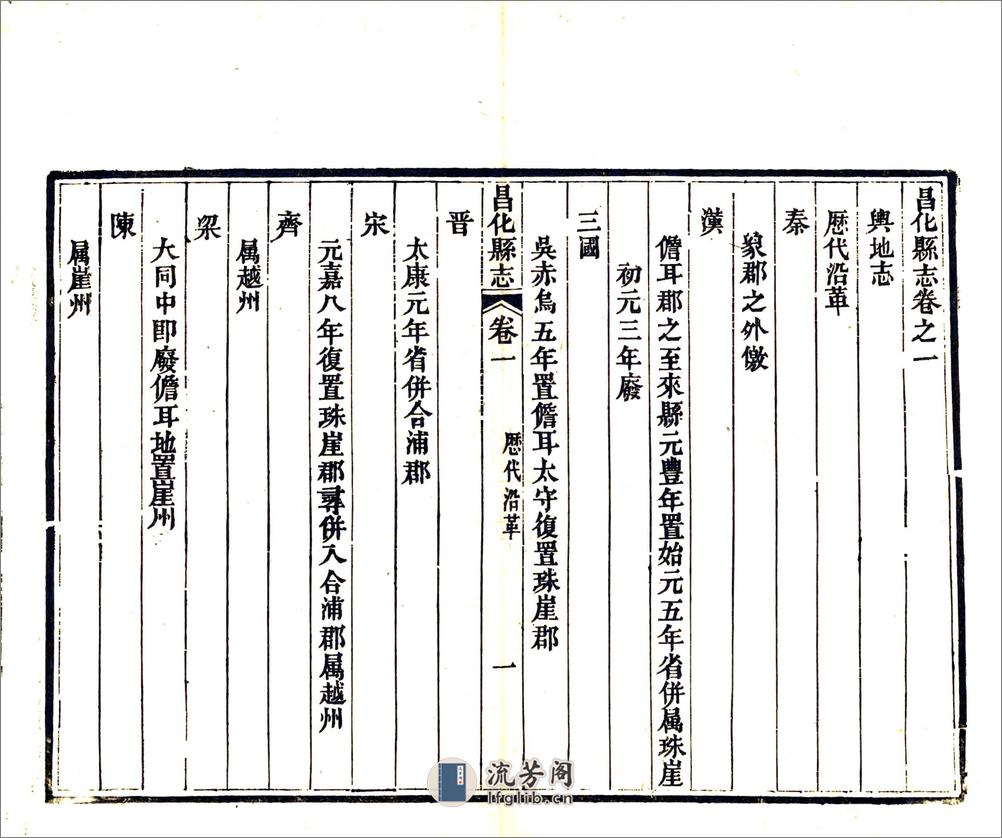 昌化縣志卷之一
輿地志
歴代沿革
秦
象郡之外徼
漢
儋耳郡之至來縣元豐年置始元五年省併属珠崖
初元三年廢
三國
吳赤烏五年置儋耳太守復置珠崖郡
昌化縣志
卷一
歴代沿革
一
晉
太康元年省併合浦郡
宋
元嘉八年復置珠崖郡尋併入合浦郡属越州
齊
属越州
梁
大同中即廢儋耳地置崖州
陳
属崖州
流芳阁
lfglib.cn